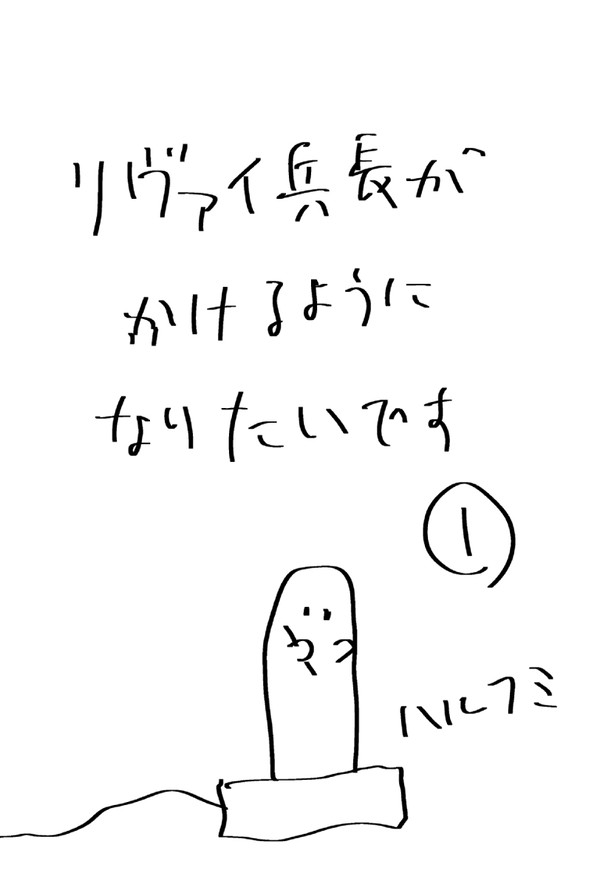 リヴァイ兵長が
かけるように
なりたいです
①
ハルフミ